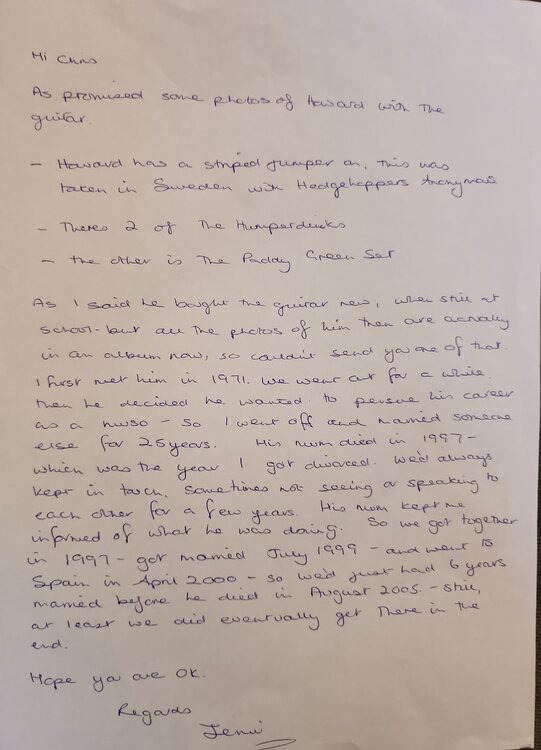 Hi Chris
As promised some photos of Howard with the
guitar.
- Howard has a striped jumper on, this was
taken in Sweden with Hedgehoppers Anonymous
- Theres 2 of The Humperdincks
- the other is The Paddy Green Set
As I said he bought the guitar new, when still at
school - but all the photos of him then are actually
in an album now, so couldn't send you one of that.
I first met him in 1971. We went out for a while
then he decided he wanted to persue his career
as a muso - so I went off and married someone
else for 25 years. His mum died in 1997 -
which was the year I got divorced. We'd always
kept in touch. Sometimes not seeing or speaking to
each other for a few years. His mum kept me
informed of what he was doing. So we got together
in 1997 - got married July 1999 - and went to
Spain in April 2000 - so we'd just had 6 years
married before he died in August 2005. - still,
at least we did eventually get there in the
end.
Hope you are OK.
Regards
Jenni